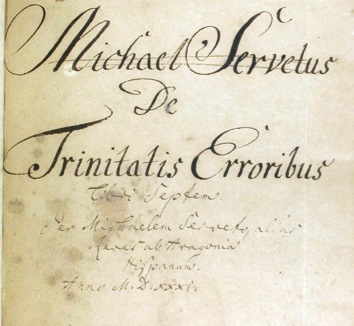 Michael Servetus
De
Trinitatis Erroribus
Libri Septem.
Per Michaelem Serveto, alias
Reves ab Aragonia
Hispanum.
Anno M.D.XXXI.